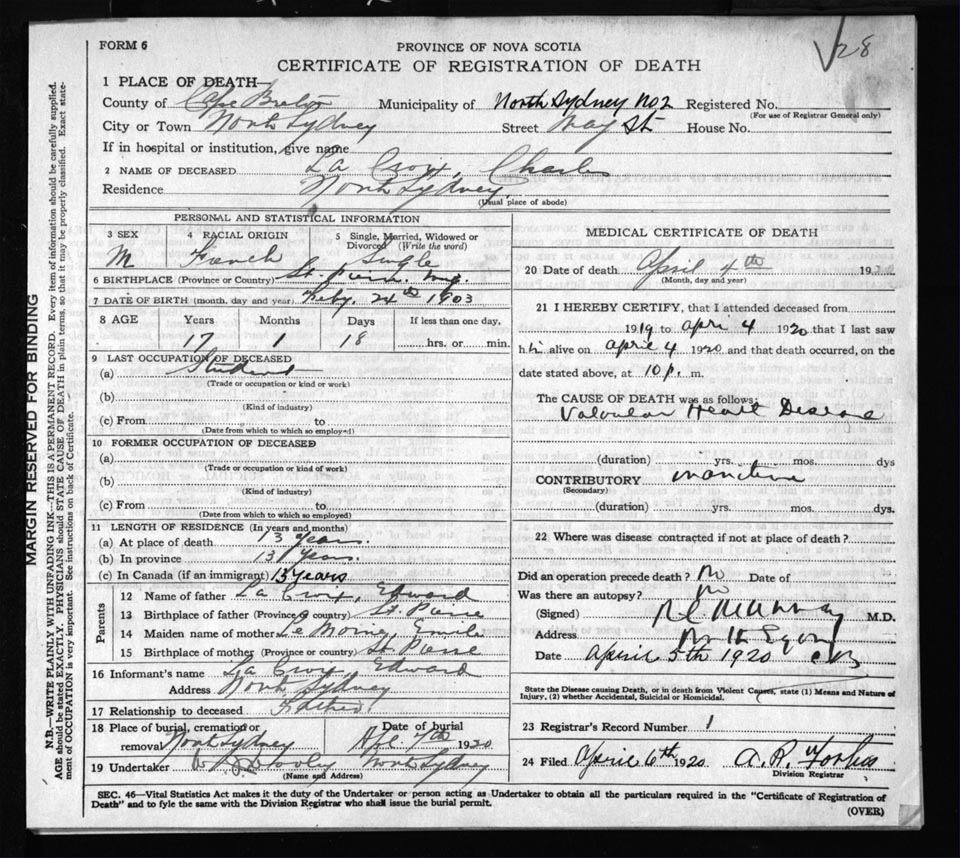 28
FORM 6
PROVINCE OF NOVA SCOTIA
CERTIFICATE OF REGISTRATION OF DEATH
1 PLACE OF DEATH—
County of Cape Breton Municipality of North Sydney No 2 Registered No.
(For use of Registrar General only)
City or Town North Sydney Street May St. House No.
If in hospital or institution, give name
2 NAME OF DECEASED La Croix, Charles
Residence North Sydney
(Usual place of abode)
PERSONAL AND STATISTICAL INFORMATION
3 SEX M
4 RACIAL ORIGIN French
5 Single, Married, Widowed or Divorced (Write the word) Single
6 BIRTHPLACE (Province or Country) St. Pierre Miq.
7 DATE OF BIRTH (month, day and year) Feby. 24th 1903
8 AGE Years 17 Months 1 Days 18 If less than one day, hrs. or min.
9 LAST OCCUPATION OF DECEASED
(a) Student
(Trade or occupation or kind or work)
(b)
(Kind of industry)
(c) From to
(Date from which to which so employed)
10 FORMER OCCUPATION OF DECEASED
(a)
(Trade or occupation or kind of work)
(b)
(Kind of industry)
(c) From to
(Date from which to which so employed)
11 LENGTH OF RESIDENCE (In years and months)
(a) At place of death 13 years.
(b) In province 13 years.
(c) In Canada (if an immigrant) 13 years
Parents
12 Name of father La Croix, Edward
13 Birthplace of father (Province or country) St. Pierre
14 Maiden name of mother Le Moine, Emile
15 Birthplace of mother (Province or country) St Pierre
16 Informant's name La Croix, Edward
Address North Sydney
17 Relationship to deceased Father
18 Place of burial, cremation or removal North Sydney Date of burial Apl 7th 1920
19 Undertaker North Sydney
(Name and Address)
MEDICAL CERTIFICATE OF DEATH
20 Date of death April 4th 1920
(Month, day and year)
21 I HEREBY CERTIFY, that I attended deceased from
1919 to April 4 1920 that I last saw
him alive on April 4 1920 and that death occurred, on the
date stated above, at 10 p. m.
The CAUSE OF DEATH was as follows:
Valvular Heart Disease
(duration) yrs. mos. dys
CONTRIBUTORY inanition
(Secondary)
(duration) yrs. mos. dys.
22 Where was disease contracted if not at place of death?
Did an operation precede death? No Date of
Was there an autopsy? No
(Signed) M.D.
Address North Sydney
Date April 5th 1920 CB
State the Disease causing Death, or in death from Violent Causes, state (1) Means and Nature of
Injury, (2) whether Accidental, Suicidal or Homicidal.
23 Registrar's Record Number 1
24 Filed April 6th 1920 A. R. Forbes
Division Registrar
SEC. 46—Vital Statistics Act makes it the duty of the Undertaker or person acting as Undertaker to obtain all the particulars required in the "Certificate of Registration of
Death" and to fyle the same with the Division Registrar who shall issue the burial permit.
(OVER)
MARGIN RESERVED FOR BINDING
N.B.—WRITE PLAINLY WITH UNFADING INK—THIS IS A PERMANENT RECORD. Every item of information should be carefully supplied.
AGE should be stated EXACTLY. PHYSICIANS should STATE CAUSE OF DEATH in plain terms, so that it may be properly classified. Exact state-
ment of OCCUPATION is very important. See instructions on back of Certificate.